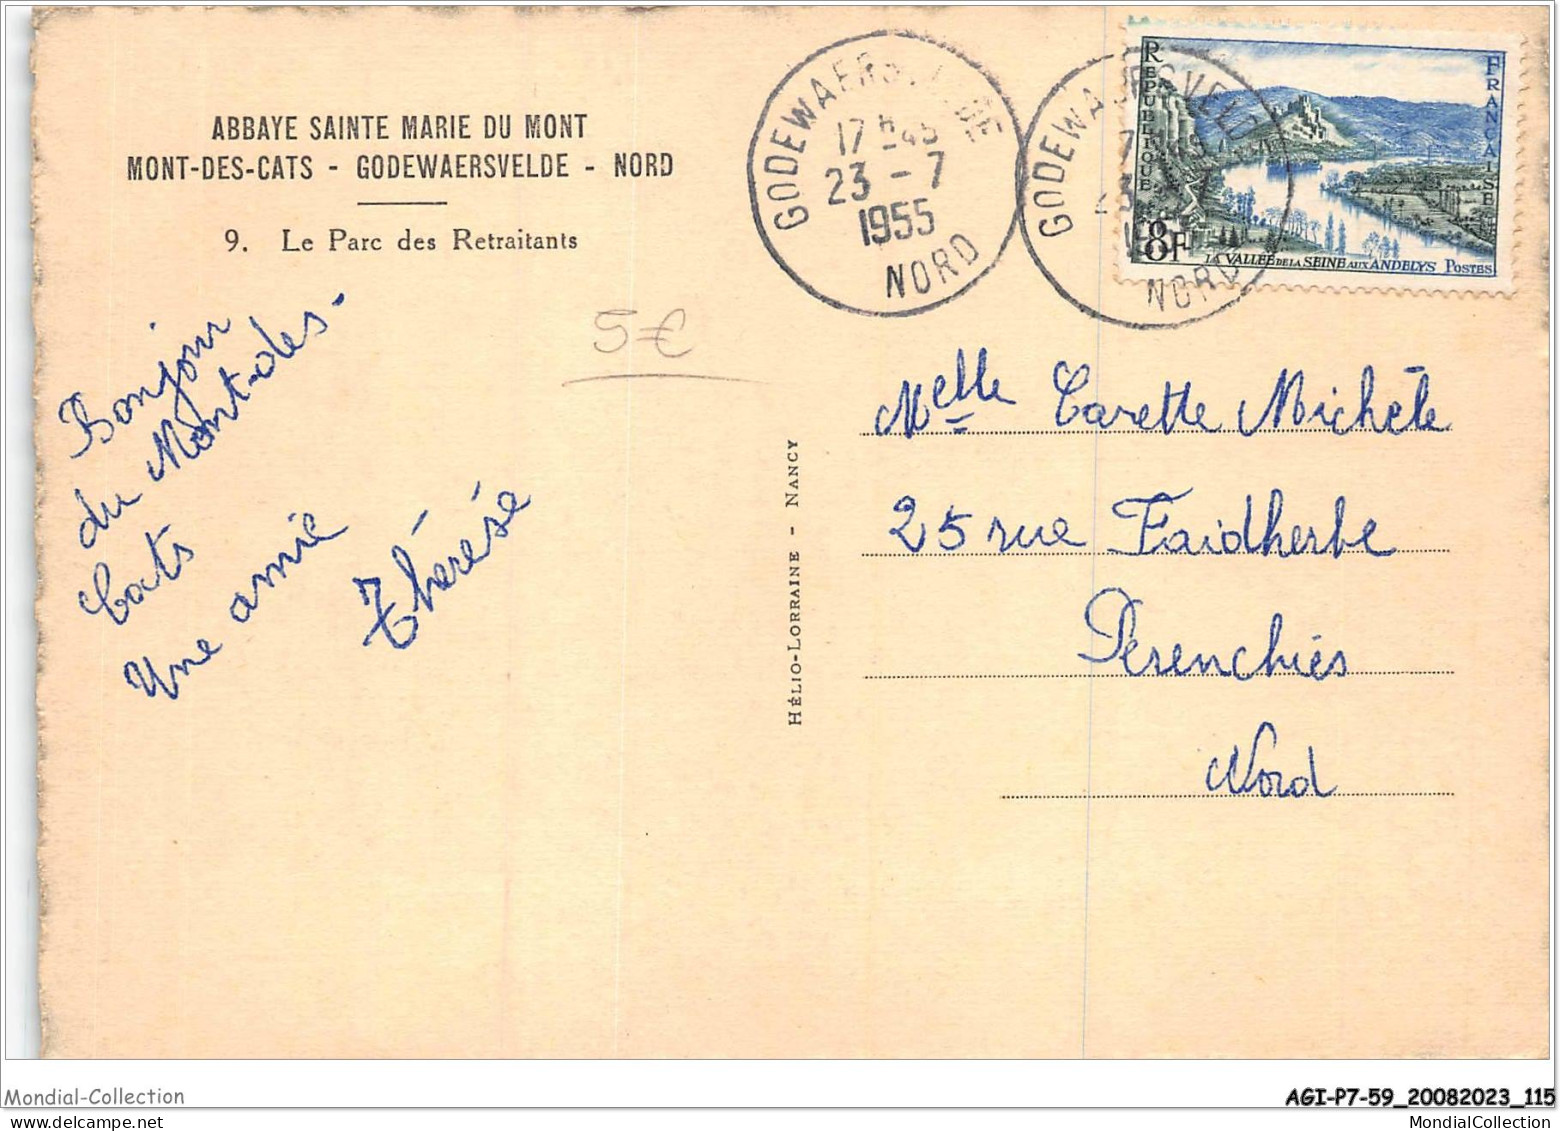 ABBAYE SAINTE MARIE DU MONT
MONT-DES-CATS - GODEWAERSVELDE - NORD
9. Le Parc des Retraitants
Bonjour
du Mont-des-
Cats
Une amie
Thérèse
5€
HÉLIO-LORRAINE - NANCY
GODEWAERSVELDE
17 h 45
23 - 7
1955
NORD
GODEWAERSVELDE
NORD
RÉPUBLIQUE
FRANÇAISE
8F
LA VALLÉE DE LA SEINE AUX ANDELYS POSTES
Melle Carette Michèle
25 rue Faidherbe
Perenchies
Nord
Mondial-Collection
AGI-P7-59_20082023_115
MondialCollection